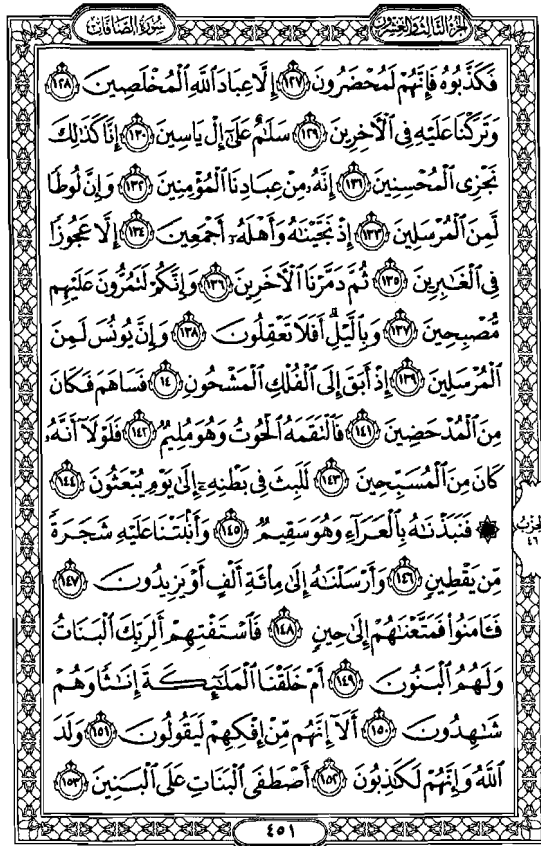 الجزء الثالث والعشرون
سورة الصافات
فَكَذَّبُوهُ فَإِنَّهُمْ لَمُحْضَرُونَ ١٢٧ إِلَّا عِبَادَ ٱللَّهِ ٱلْمُخْلَصِينَ ١٢٨
وَتَرَكْنَا عَلَيْهِ فِى ٱلْآخِرِينَ ١٢٩ سَلَٰمٌ عَلَىٰٓ إِلْ يَاسِينَ ١٣٠ إِنَّا كَذَٰلِكَ
نَجْزِى ٱلْمُحْسِنِينَ ١٣١ إِنَّهُۥ مِنْ عِبَادِنَا ٱلْمُؤْمِنِينَ ١٣٢ وَإِنَّ لُوطًا
لَّمِنَ ٱلْمُرْسَلِينَ ١٣٣ إِذْ نَجَّيْنَٰهُ وَأَهْلَهُۥٓ أَجْمَعِينَ ١٣٤ إِلَّا عَجُوزًا
فِى ٱلْغَٰبِرِينَ ١٣٥ ثُمَّ دَمَّرْنَا ٱلْآخَرِينَ ١٣٦ وَإِنَّكُمْ لَتَمُرُّونَ عَلَيْهِم
مُّصْبِحِينَ ١٣٧ وَبِٱلَّيْلِ أَفَلَا تَعْقِلُونَ ١٣٨ وَإِنَّ يُونُسَ لَمِنَ
ٱلْمُرْسَلِينَ ١٣٩ إِذْ أَبَقَ إِلَى ٱلْفُلْكِ ٱلْمَشْحُونِ ١٤٠ فَسَاهَمَ فَكَانَ
مِنَ ٱلْمُدْحَضِينَ ١٤١ فَٱلْتَقَمَهُ ٱلْحُوتُ وَهُوَ مُلِيمٌ ١٤٢ فَلَوْلَآ أَنَّهُۥ
كَانَ مِنَ ٱلْمُسَبِّحِينَ ١٤٣ لَلَبِثَ فِى بَطْنِهِۦٓ إِلَىٰ يَوْمِ يُبْعَثُونَ ١٤٤
۞ فَنَبَذْنَٰهُ بِٱلْعَرَآءِ وَهُوَ سَقِيمٌ ١٤٥ وَأَنۢبَتْنَا عَلَيْهِ شَجَرَةً
مِّن يَقْطِينٍ ١٤٦ وَأَرْسَلْنَٰهُ إِلَىٰ مِا۟ئَةِ أَلْفٍ أَوْ يَزِيدُونَ ١٤٧
فَـَٔامَنُوا۟ فَمَتَّعْنَٰهُمْ إِلَىٰ حِينٍ ١٤٨ فَٱسْتَفْتِهِمْ أَلِرَبِّكَ ٱلْبَنَاتُ
وَلَهُمُ ٱلْبَنُونَ ١٤٩ أَمْ خَلَقْنَا ٱلْمَلَٰٓئِكَةَ إِنَٰثًا وَهُمْ
شَٰهِدُونَ ١٥٠ أَلَآ إِنَّهُم مِّنْ إِفْكِهِمْ لَيَقُولُونَ ١٥١ وَلَدَ
ٱللَّهُ وَإِنَّهُمْ لَكَٰذِبُونَ ١٥٢ أَصْطَفَى ٱلْبَنَاتِ عَلَى ٱلْبَنِينَ ١٥٣
الحزب
٤٦
٤٥١